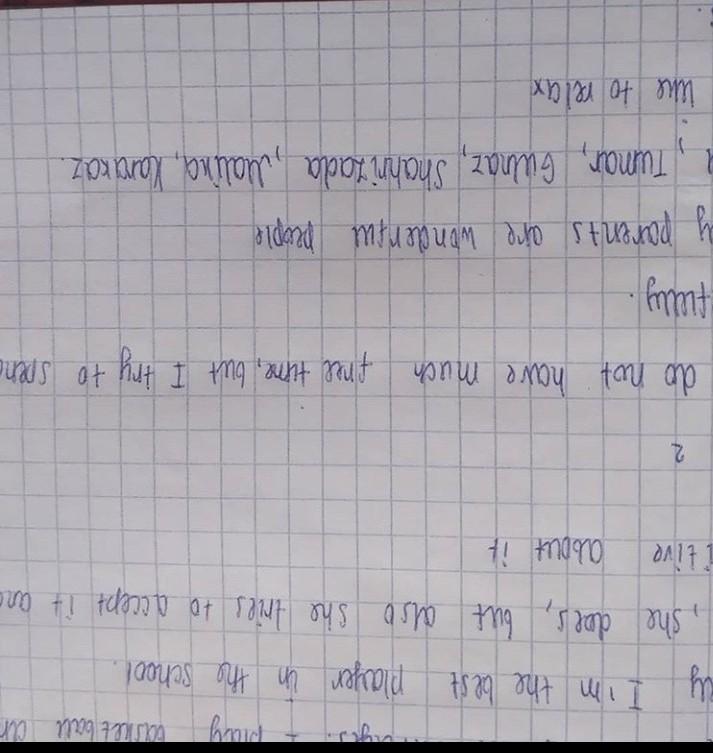 I play basketball an
ly I'm the best player in the school.
, she does, but also she tries to accept it and
itive about it
2
do not have much free time, but I try to spend
fully.
y parents are wonderful people
, Tumar, Gulnaz, Shahrizada, Malika, Karakoz.
like to relax